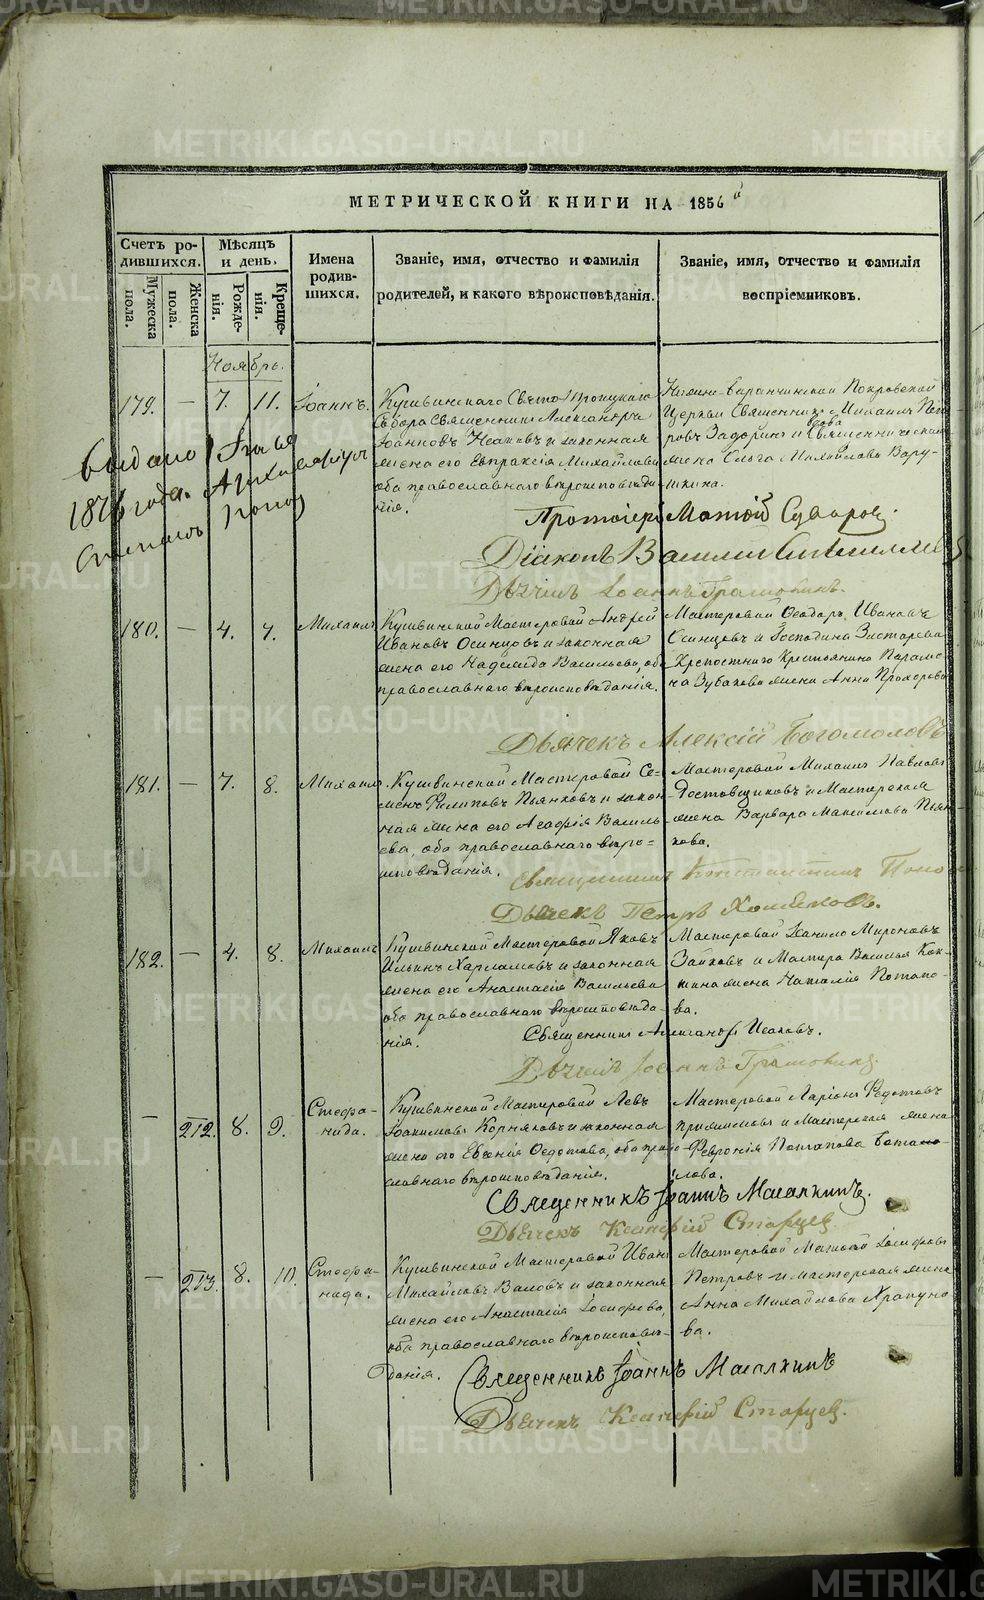 МЕТРИЧЕСКОЙ КНИГИ НА 1856й
Счетъ ро-
дившихся.
Мѣсяцъ
и день.
Имена
родив-
шихся.
Званіе, имя, отчество и фамилія
родителей, и какого вѣроисповѣданія.
Званіе, имя, отчество и фамилія
воспріемниковъ.
Мужеска
пола.
Женска
пола.
Рожде-
нія.
Креще-
нія.
Ноябрь.
179. — 7. 11. Іоаннъ.
Кушвинскаго Свято Троицкаго
Собора Священникъ Александръ
Іоанновъ Исаковъ и законная
жена его Евпраксія Михайлова
оба православнаго вѣроисповѣда-
нія.
Нижне-Баранчинской Покровской
Церкви Священникъ Михаилъ Пет-
ровъ Задоринъ и Священническая
жена Ольга Михайлова Вару-
шкина.
Выдано
1876 года.
Протоіерей Матѳій Суворов
Діаконъ Василій
Дьячекъ Іоаннъ Грамовикъ.
180. — 4. 7. Михаилъ
Кушвинскій Мастеровой Андрей
Ивановъ Осинцовъ и законная
жена его Надежда Васильева, оба
православнаго вѣроисповѣданія.
Мастеровой Ѳеодоръ Ивановъ
Осинцовъ и Господина
Крепостнаго Крестьянина Парамо-
на Зубакова жена Анна Прохорова
Дьячекъ Алексій Богомоловъ
181. — 7. 8. Михаилъ.
Кушвинской Мастеровой Се-
менъ Филиповъ Пьянковъ и закон-
ная жена его Агафія Василь-
ева, оба православнаго вѣро-
исповѣданія.
Мастеровой Михаилъ Павловъ
Ростовщиковъ и Мастерская
жена Варвара Максимова Пьян-
кова.
Священникъ Константинъ Попов
Дьячекъ Петръ Хомяковъ.
182. — 4. 8. Михаилъ
Кушвинской Мастеровой Яковъ
Ильинъ Харламовъ и законная
жена его Анастасія Васильева
оба православнаго вѣроисповѣда-
нія.
Мастеровой Данило Мироновъ
Заиковъ и Мастера Василья Кок-
шина жена Наталія Потапо-
ва.
Священникъ Александръ Исаковъ.
Дьячекъ Іоаннъ Грамовикъ.
— 212. 8. 9. Стефа-
нида.
Кушвинской Мастеровой Левъ
Іоакимовъ Корняковъ и законная
жена его Евгенія Ѳедотова, оба право-
славнаго вѣроисповѣданія.
Мастеровой Ларіонъ Федотовъ
и Мастерская жена
Февронія Потапова
лова.
Священникъ Іоаннъ Масалкинъ.
Дьячекъ Ксанфій Старцев
— 213. 8. 10. Стефа-
нида.
Кушвинской Мастеровой Иванъ
Михайловъ Валовъ и законная
жена его Анастасія Іосифова,
оба православнаго вѣроисповѣ-
данія.
Мастеровой Матвѣй Іосифовъ
Петровъ и мастерская жена
Анна Михайлова Храпуно-
ва.
Священникъ Іоаннъ Масалкинъ
Дьячекъ Ксанфій Старцев.
METRIKI.GASO-URAL.RU